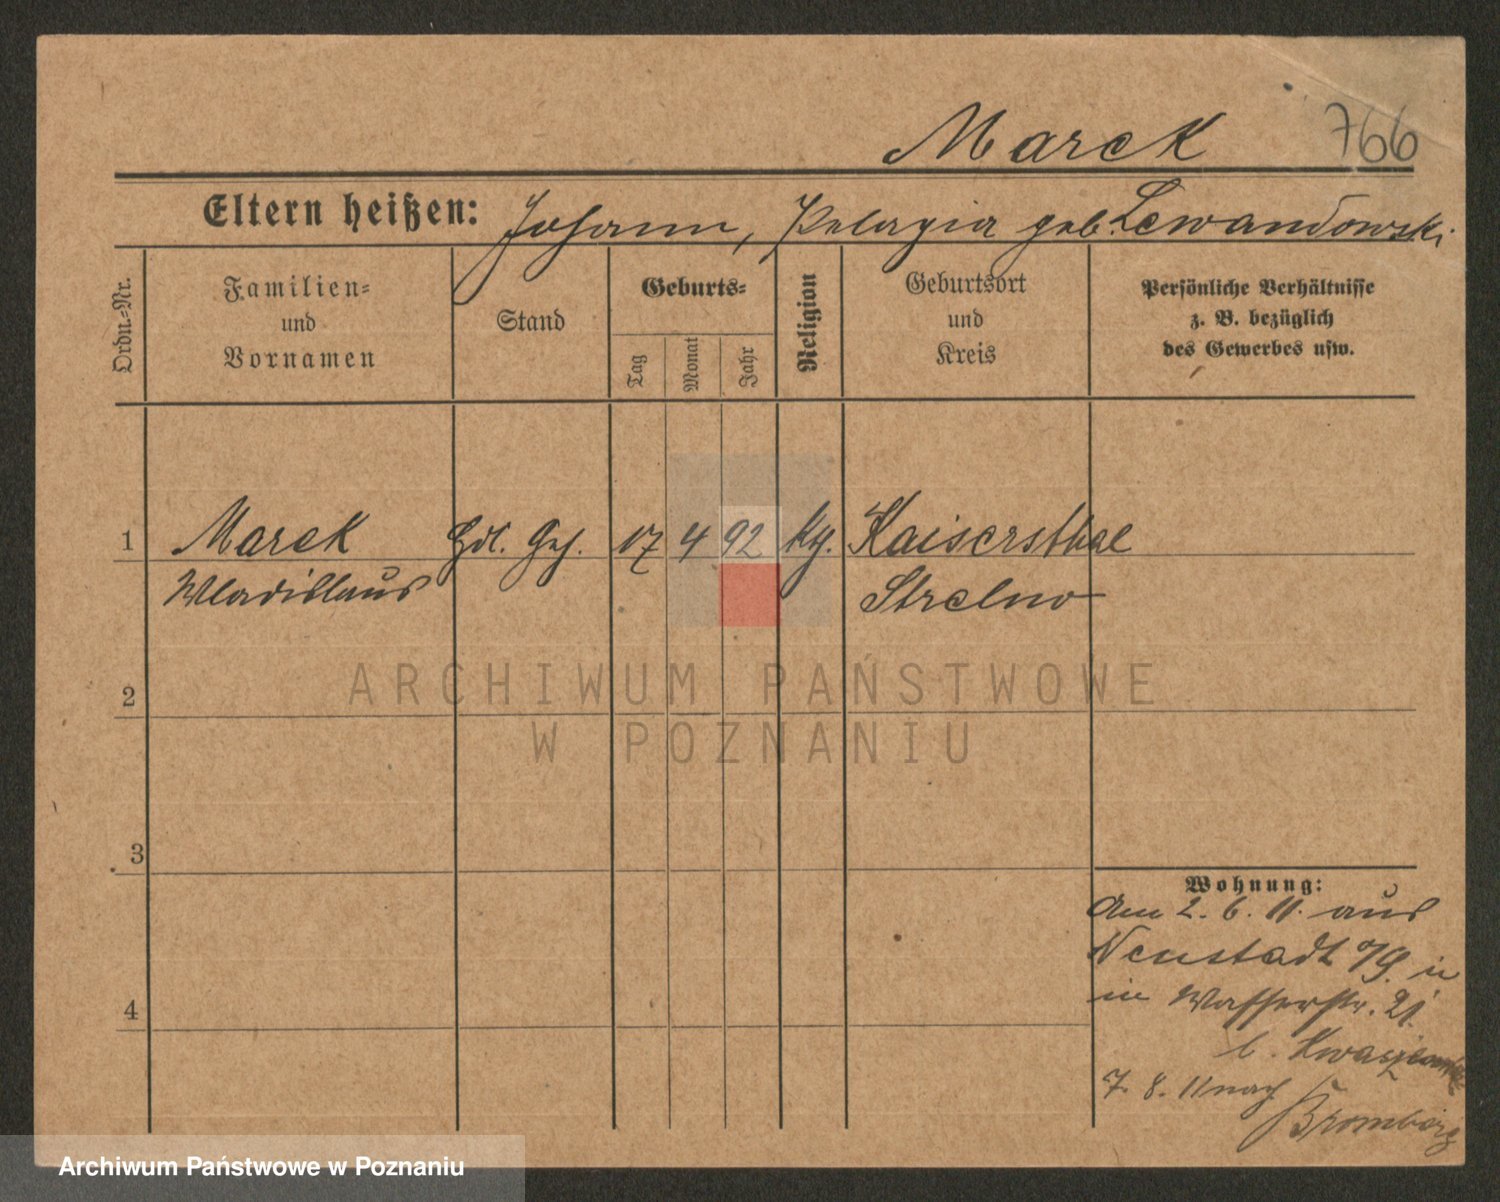 Marek 766
Eltern heißen: Johann, Pelagia geb. Lewandowski
Ordn.-Nr.
Familien-
und
Vornamen
Stand
Geburts-
Tag
Monat
Jahr
Religion
Geburtsort
und
Kreis
Persönliche Verhältnisse
z. B. bezüglich
des Gewerbes usw.
1 Marek Hdl. Geh. 17 4 92 kth. Kaisersthal
Wladislaus Strelno
2
ARCHIWUM PAŃSTWOWE
W POZNANIU
3
Wohnung:
Am 2. 6. 11. aus
Neustadt a/
in Wasserstr. 21.
b.
4
7. 8. 11 nach
Bromberg
Archiwum Państwowe w Poznaniu